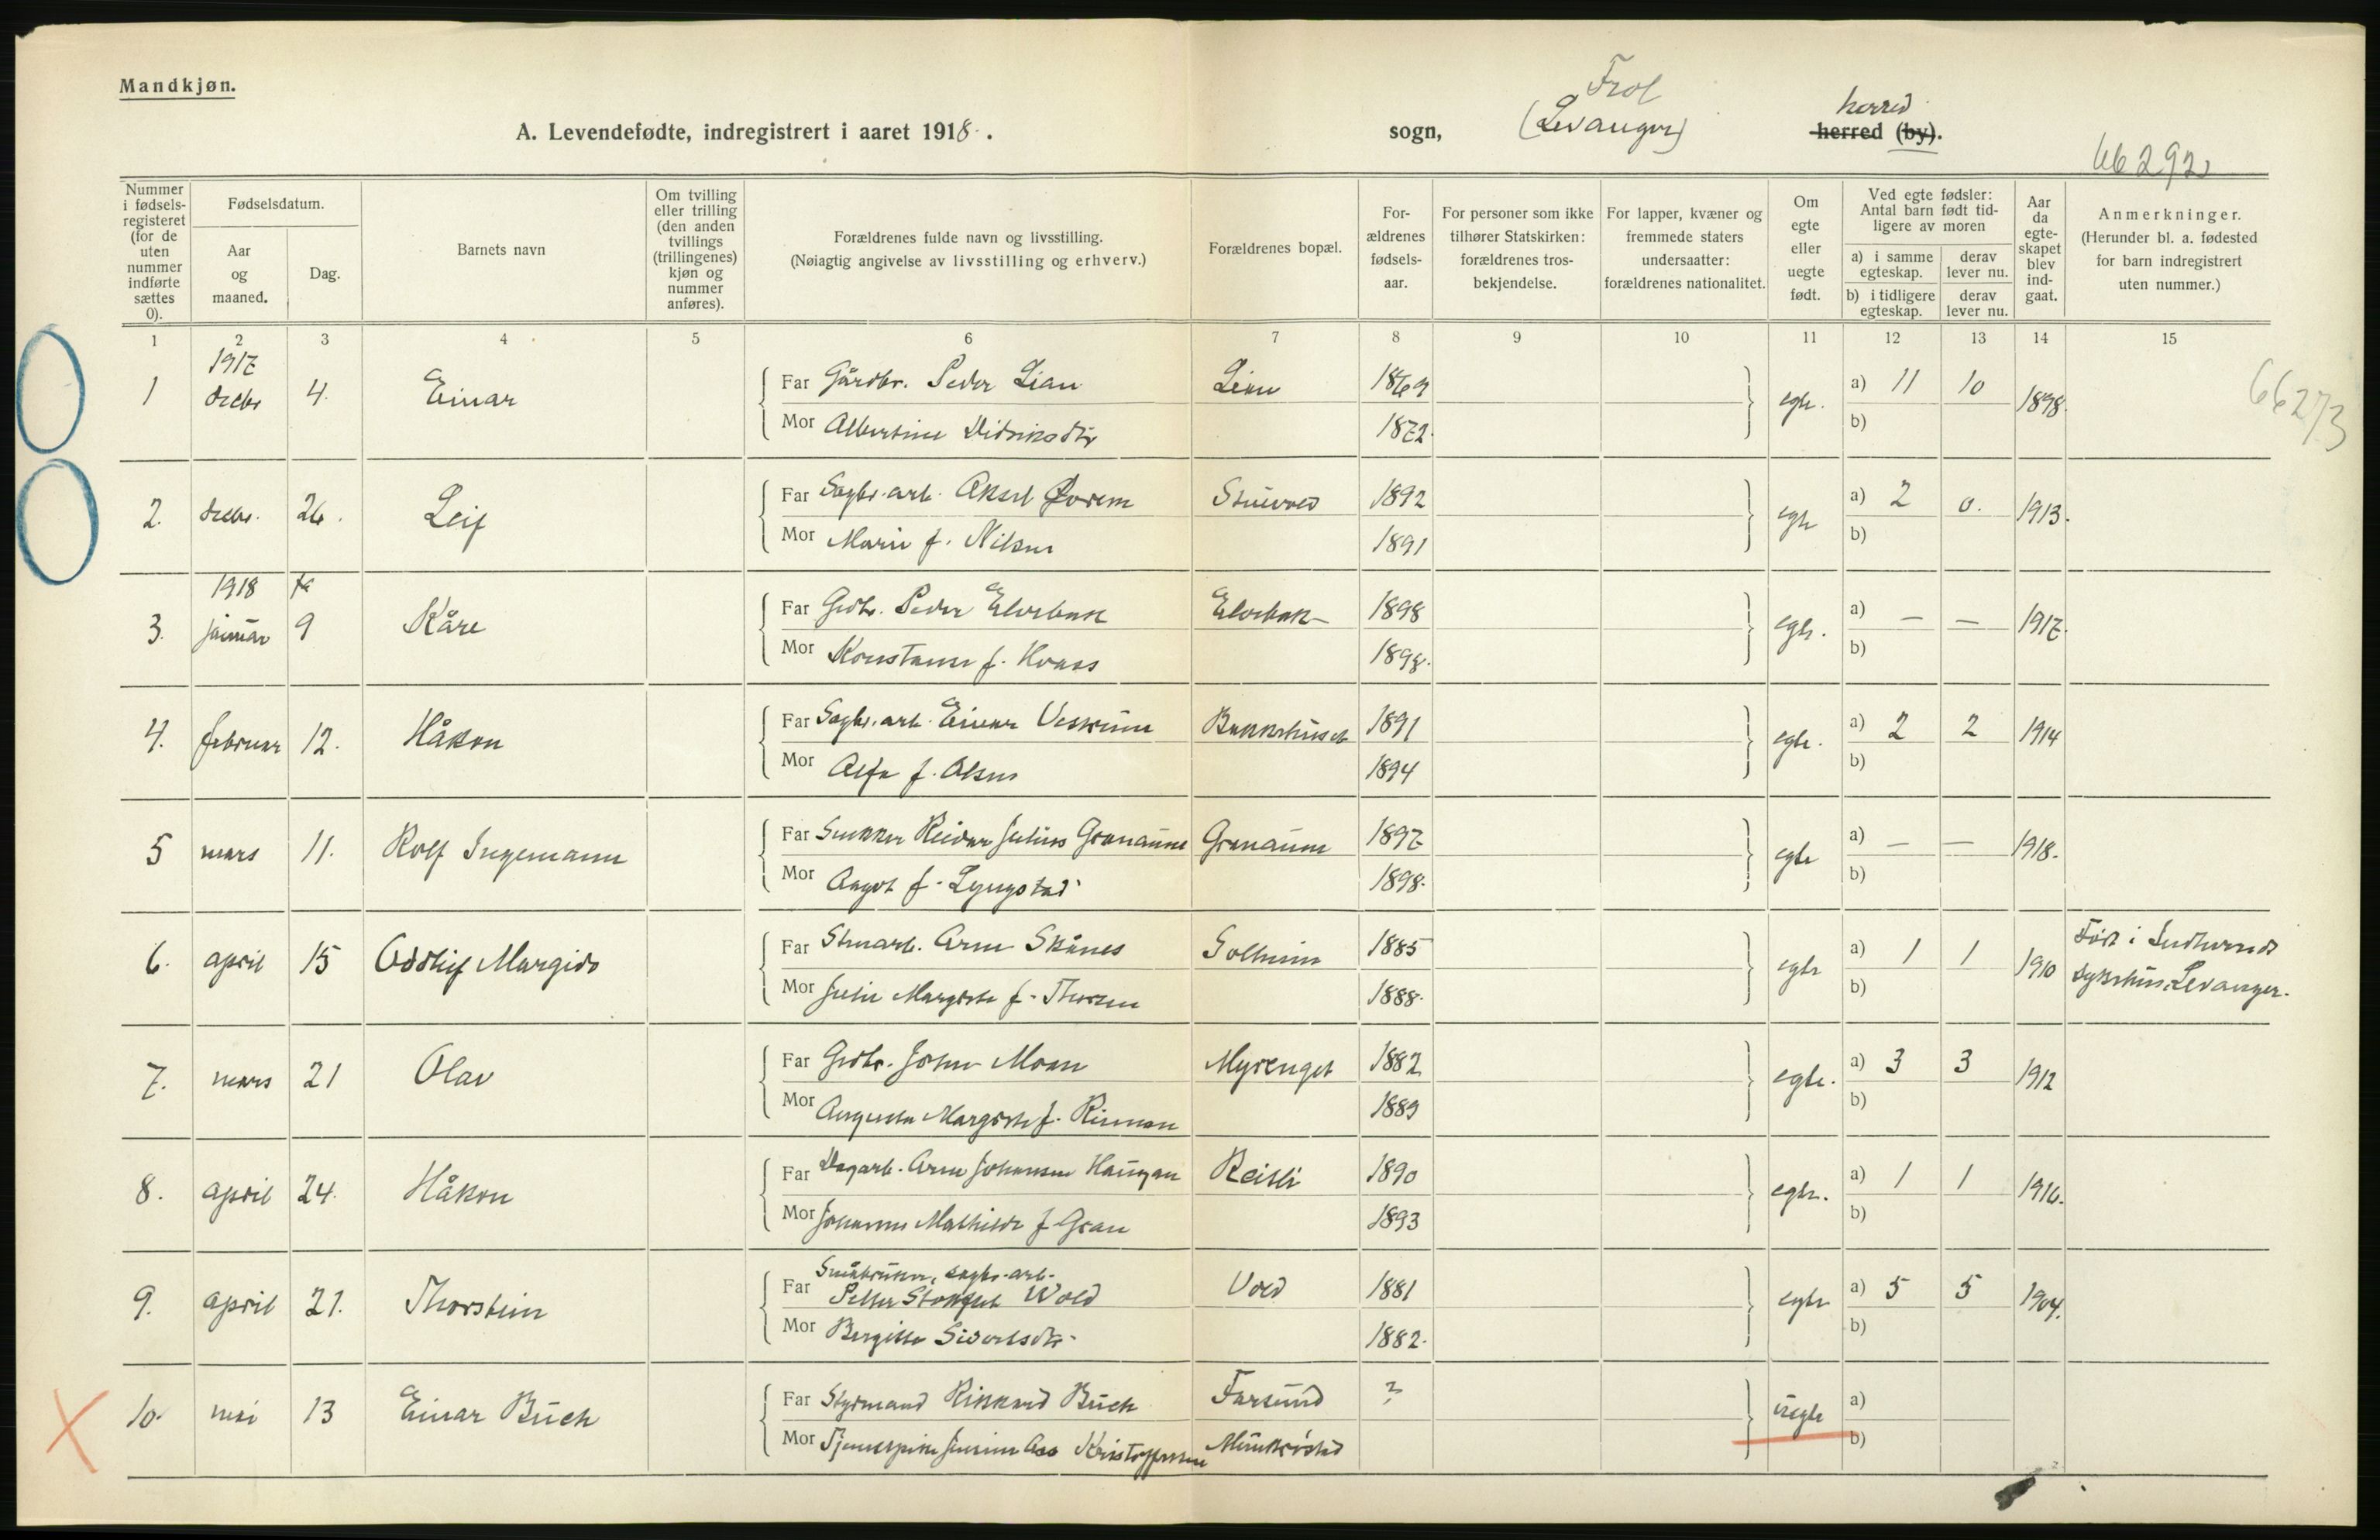 Mandkjøn.
Frol
herred
A. Levendefødte, indregistrert i aaret 1918.
sogn, (Levanger) herred (by).
66292
Nummer i fødselsregisteret (for de uten nummer indførte sættes 0).
Fødselsdatum.
Aar og maaned.
Dag.
Barnets navn
Om tvilling eller trilling (den anden tvillings (trillingenes) kjøn og nummer anføres).
Forældrenes fulde navn og livsstilling.
(Nøiagtig angivelse av livsstilling og erhverv.)
Forældrenes bopæl.
Forældrenes fødselsaar.
For personer som ikke tilhører Statskirken: forældrenes trosbekjendelse.
For lapper, kvæner og fremmede staters undersaatter: forældrenes nationalitet.
Om egte eller uegte født.
Ved egte fødsler: Antal barn født tidligere av moren
a) i samme egteskap. derav lever nu.
b) i tidligere egteskap. derav lever nu.
Aar da egteskapet blev indgaat.
Anmerkninger.
(Herunder bl. a. fødested for barn indregistrert uten nummer.)
1 2 3 4 5 6 7 8 9 10 11 12 13 14 15
1917
1 decbr 4. Einar Far Gårdbr. Peder Lian Lian 1869 egte. a) 11 10 1898.
Mor Albertine Didriksdtr 1872. b)
66273
2. decbr. 26. Leif Far Sagbr. arb. Aksel Storem 1892 egte a) 2 0. 1913.
Mor Marie f. Nilsen 1891 b)
1918
3. januar 9 Kåre Far Grdbr. Peder Elvebak Elvebak 1898 egte. a) — — 1917.
Mor Konstanse f. Hvass 1898. b)
4. februar 12. Håkon Far Sagbr. arb. Einar Vestrum Bakkehuset 1891 egte. a) 2 2 1914
Mor Alfa f. Olsen 1894 b)
5 mars 11. Rolf Ingemann Far Snekker Reidar Julius Granaune Granaune 1897 egte a) — — 1918.
Mor Aagot f. Lyngstad 1898. b)
6. april 15 Oddleif Margido Far Stenarb. Arne Skånes Solheim 1885 egte a) 1 1 1910 Født i Indherreds
Mor Julie Margrete f. Thorsen 1888. b) sykehus, Levanger.
7. mars 21 Olav Far Grdbr. Johan Moan Myrenget 1882 egte. a) 3 3 1912
Mor Augusta Margrete f. Rinnan 1889 b)
8. april 24. Håkon Far Dagarb. Arne Johansen Haugan Reisli 1890 egte. a) 1 1 1916.
Mor Johanna Mathilde f. Gran 1893 b)
Småbruker, sagbr. arb.
9. april 21. Thorstein Far Petter Wold Vold 1881 egte a) 5 5 1904.
Mor Bergitte Sivertsdtr. 1882. b)
10. mai 13 Einar Buch Far Styrmand Rikkard Buch Farsund ? uegte a)
Mor Tjenestpike Jensine Aas Kristoffersen Munkrøstad b)